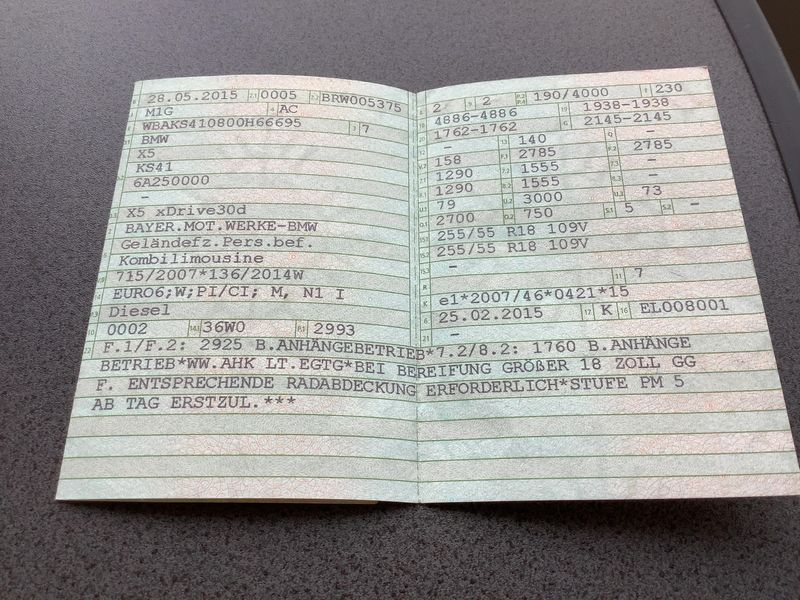 28.05.2015 0005 BRW005375
M1G AC
WBAKS410800H66695 7
BMW
X5
KS41
6A250000
–
X5 xDrive30d
BAYER.MOT.WERKE-BMW
Geländefz.Pers.bef.
Kombilimousine
715/2007*136/2014W
EURO6;W;PI/CI; M, N1 I
Diesel
0002 36W0 2993
2 2 190/4000 230
4886-4886 1938-1938
1762-1762 2145-2145
– 140 –
158 2785 2785
1290 1555 –
1290 1555 –
79 3000 73
2700 750 5 –
255/55 R18 109V
255/55 R18 109V
–
7
e1*2007/46*0421*15
25.02.2015 K EL008001
–
F.1/F.2: 2925 B.ANHÄNGEBETRIEB*7.2/8.2: 1760 B.ANHÄNGE
BETRIEB*WW.AHK LT.EGTG*BEI BEREIFUNG GRÖßER 18 ZOLL GG
F. ENTSPRECHENDE RADABDECKUNG ERFORDERLICH*STUFE PM 5
AB TAG ERSTZUL.***